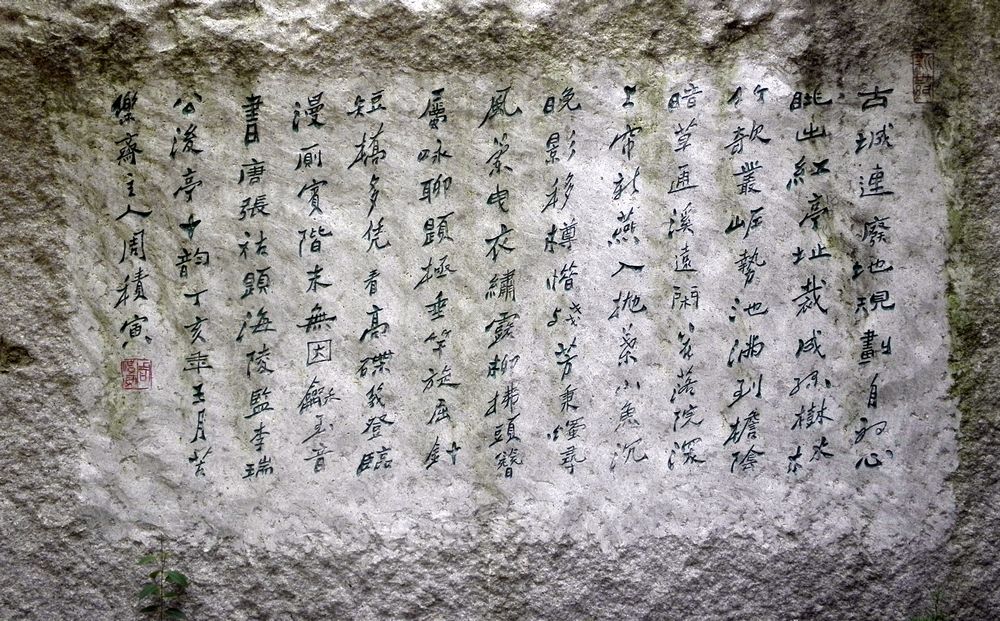 古城連廢地規劃自初心
眺出紅亭址裁成綠樹林
竹欹叢崖勢池滿到檐陰
暗草通溪遠閑花落院深
上帘新燕入拋葉小魚沉
晚影移樽惜殘芳秉燭尋
風葉曳衣繡露柳拂頭簪
屬咏聊題極垂竿旋屈針
短橋多凭看高堞幾登臨
漫廁賓階末無因龢至音
書唐張祜題海陵監李瑞
公後亭十韵丁亥年五月苦
樂齋主人周積寅